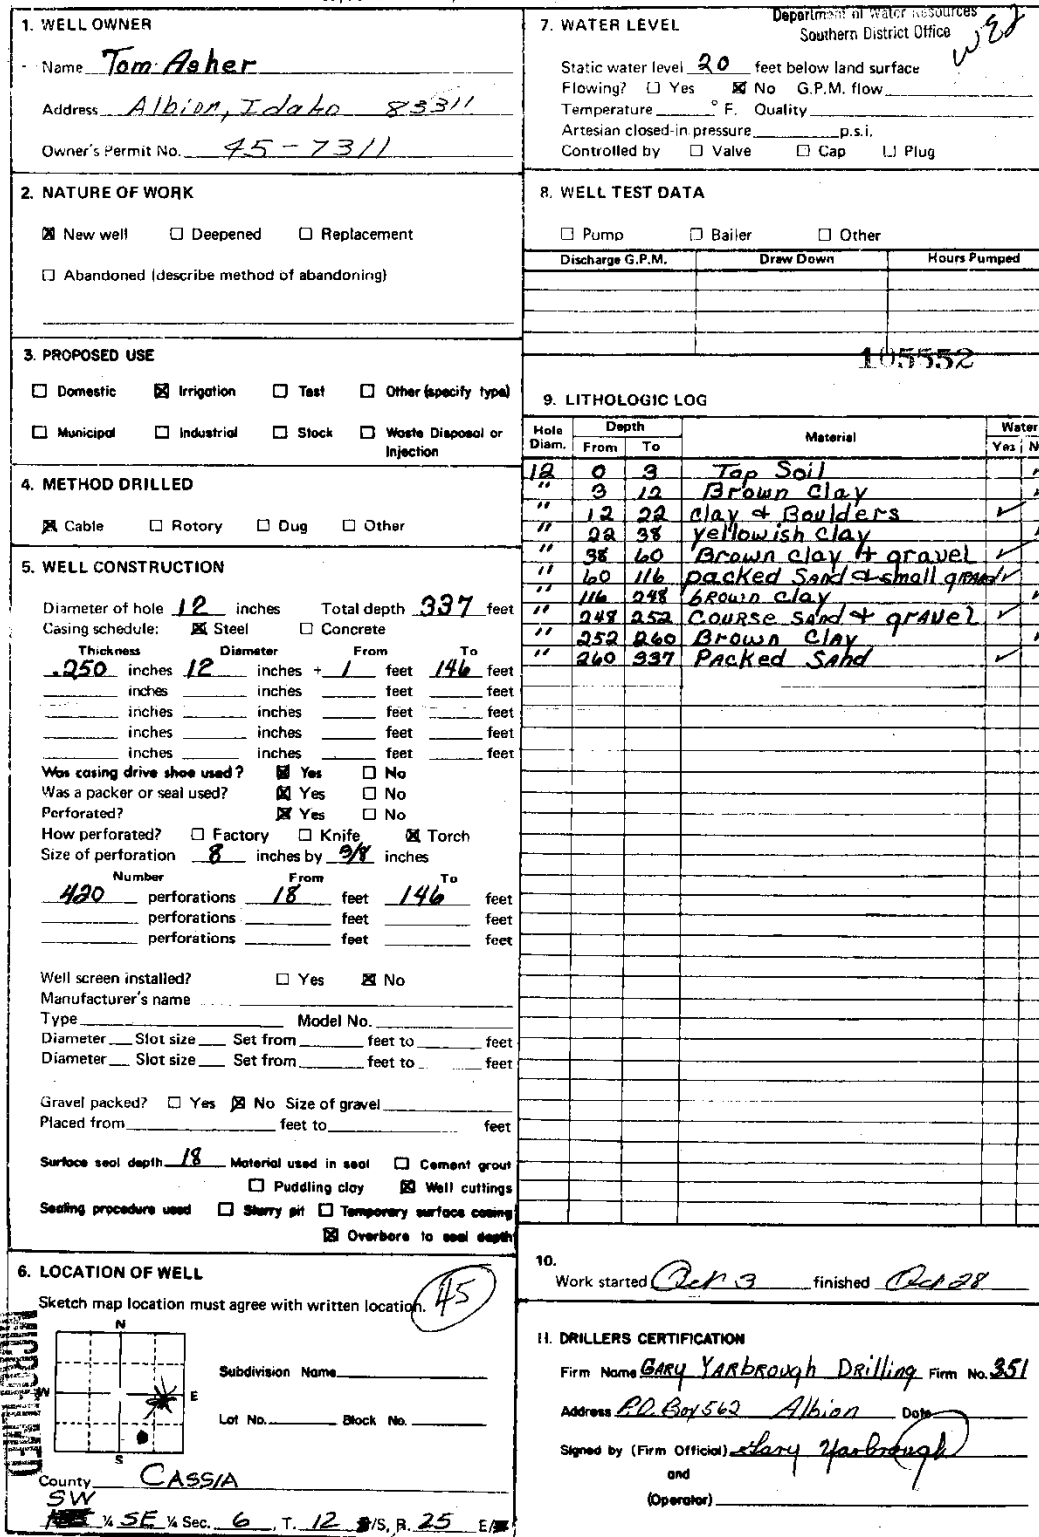 Department of Water Resources
Southern District Office
1. WELL OWNER
Name Tom Asher
Address Albion, Idaho 83311
Owner's Permit No. 45-7311
2. NATURE OF WORK
☒ New well ☐ Deepened ☐ Replacement
☐ Abandoned (describe method of abandoning)
3. PROPOSED USE
☐ Domestic ☒ Irrigation ☐ Test ☐ Other (specify type)
☐ Municipal ☐ Industrial ☐ Stock ☐ Waste Disposal or
Injection
4. METHOD DRILLED
☒ Cable ☐ Rotory ☐ Dug ☐ Other
5. WELL CONSTRUCTION
Diameter of hole 12 inches Total depth 337 feet
Casing schedule: ☒ Steel ☐ Concrete
Thickness Diameter From To
.250 inches 12 inches + 1 feet 146 feet
inches inches feet feet
inches inches feet feet
inches inches feet feet
inches inches feet feet
Was casing drive shoe used? ☒ Yes ☐ No
Was a packer or seal used? ☒ Yes ☐ No
Perforated? ☒ Yes ☐ No
How perforated? ☐ Factory ☐ Knife ☒ Torch
Size of perforation 8 inches by 3/8 inches
Number From To
420 perforations 18 feet 146 feet
perforations feet feet
perforations feet feet
Well screen installed? ☐ Yes ☒ No
Manufacturer's name
Type Model No.
Diameter Slot size Set from feet to feet
Diameter Slot size Set from feet to feet
Gravel packed? ☐ Yes ☒ No Size of gravel
Placed from feet to feet
Surface seal depth 18 Material used in seal ☐ Cement grout
☐ Puddling clay ☒ Well cuttings
Sealing procedure used ☐ Slurry pit ☐ Temporary surface casing
☒ Overbore to seal depth
6. LOCATION OF WELL
45
Sketch map location must agree with written location.
N
W E
S
Subdivision Name
Lot No. Block No.
MICROFILMED
County CASSIA
SW
¼ SE ¼ Sec. 6, T. 12 /S, R. 25 E/
7. WATER LEVEL
Static water level 20 feet below land surface
Flowing? ☐ Yes ☒ No G.P.M. flow
Temperature ° F. Quality
Artesian closed-in pressure p.s.i.
Controlled by ☐ Valve ☐ Cap ☐ Plug
8. WELL TEST DATA
☐ Pump ☐ Bailer ☐ Other
Discharge G.P.M. Draw Down Hours Pumped
105552
9. LITHOLOGIC LOG
Hole Depth Water
Diam. From To Material Yes N
12 0 3 Top Soil
" 3 12 Brown Clay
" 12 22 clay & Boulders ✓
" 22 38 yellowish clay
" 38 60 Brown clay + gravel ✓
" 60 116 packed Sand & small gravel ✓
" 116 248 brown clay
" 248 252 COURSE Sand + gravel ✓
" 252 260 Brown Clay
" 260 337 Packed Sand ✓
10.
Work started Oct 3 finished Oct 28
11. DRILLERS CERTIFICATION
Firm Name GARY YARBROUGH Drilling Firm No. 351
Address P.O. Box 562 Albion Date
Signed by (Firm Official) Gary Yarbrough
and
(Operator)